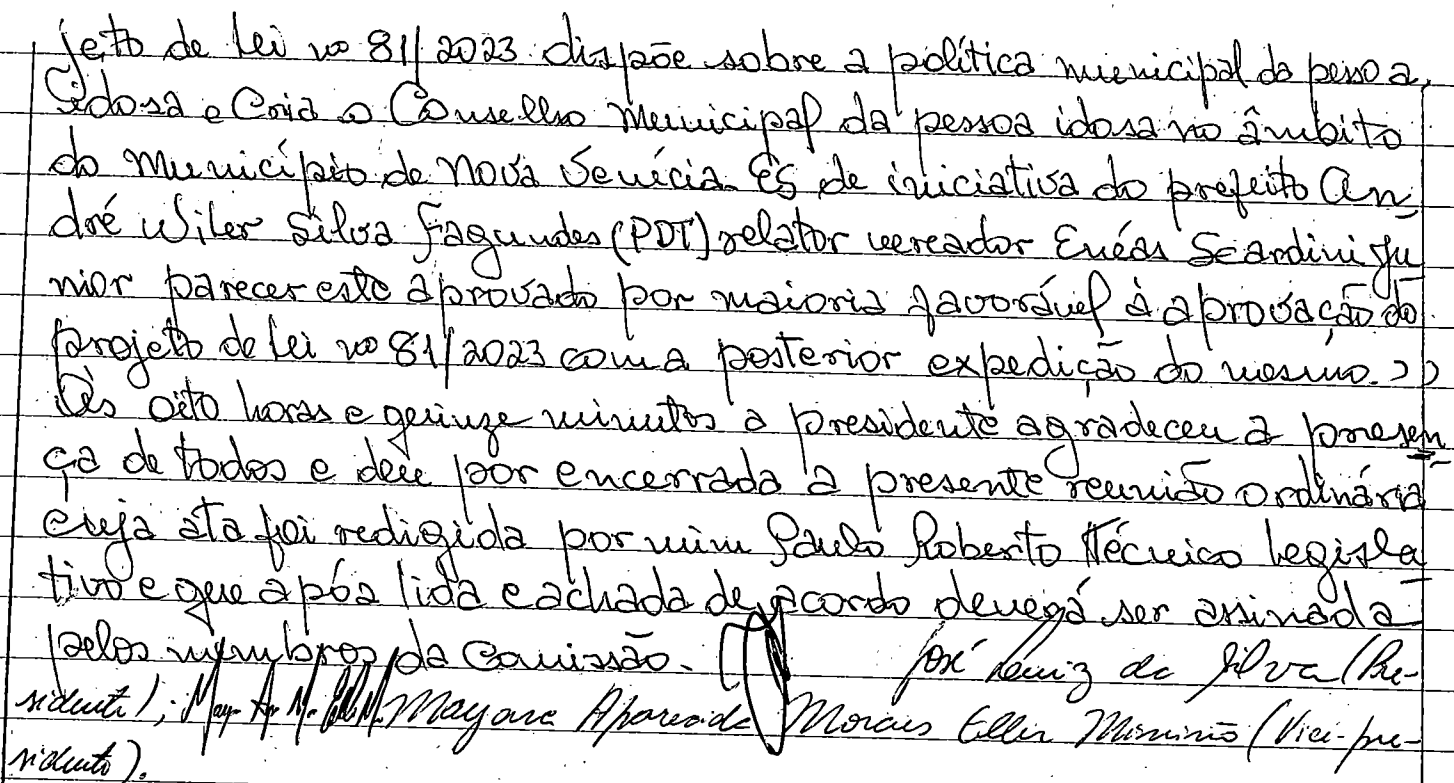 jeto de lei nº 81/2023 dispõe sobre a política municipal da pessoa
Idosa e Cria o Conselho Municipal da pessoa idosa no âmbito
do Município de Nova Venécia-ES de iniciativa do prefeito An
dré Wiler Silva Fagundes (PDT) relator vereador Enéas Scardini Ju
nior parecer este aprovado por maioria favorável à aprovação do
projeto de lei nº 81/2023 com a posterior expedição do mesmo. >>
Às oito horas e quinze minutos a presidente agradeceu a presen
ça de todos e deu por encerrada a presente reunião ordinária
cuja ata foi redigida por mim Paulo Roberto Técnico Legisla
tivo e que após lida e achada de acordo deverá ser assinada
pelos membros da Comissão. José Luiz da Silva (Pre-
sidente); Mayara Aparecida Morais Eller (Vice-pre-
sidente).